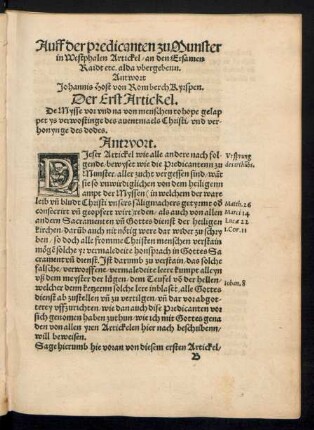 Auff der predicanten zu Munster
in Westphalen Artickel/ an den Ersamen
Raidt etc. alda vbergebenn.
Antwort
Johannis Host von Romberch Kyrspen.
Der Erst Artickel.
De Mysse vor vnd na von menschen to hope gelap
pet ys verwostinge des auentmaels Christi/ vnd ver
honynge des dodes.
Antwort.
DJeser Artickel wie alle andere nach fol-
gende/ bewyset wie dei Predicantenn zu
Munster/ aller zucht vergessen sind/ wāt
sie so vnwirdiglichen von dem heiligenn
ampt der Myssen/ in welchem der ware
leib vñ bludt Christi vnsers säligmachers getzymt od
consecrirt vñ geopfert wirt reden/ als auch von allen
andern Sacramenten vñ Gottes dienst der heiligen
kirchen/ darūb auch nit nörig were dar wider zu schry
ben/ so doch alle fromme Christen menschen verstain
mögē solches yr vermaledeite honsprach in Gottes Sa
crament vñ dienst. Jst darumb zu verstain/ das solche
falsche/ verwoffene/ vermaledeite leere kumpt alleyn
vß dem meyster der lögen/ dem Teufel vß der hellen/
welcher dem ketzeren solche lere inblaset/ alle Gottes
dienst ab zustellen vñ zu vertilgen/ vñ dar vorabgot-
terey vffzurichten/ wie dan auch dise Predicanten vor
sich genomen haben zuthun/ wie ich mit Gottes gena
den von allen yren Artickelen hier nach beschribenn/
will beweisen.
Sage hierumb hie voran von diesem ersten Artickel/
B
Matth. 26
Marci 14
Luce 22
1. Cor. 11
Johan. 8